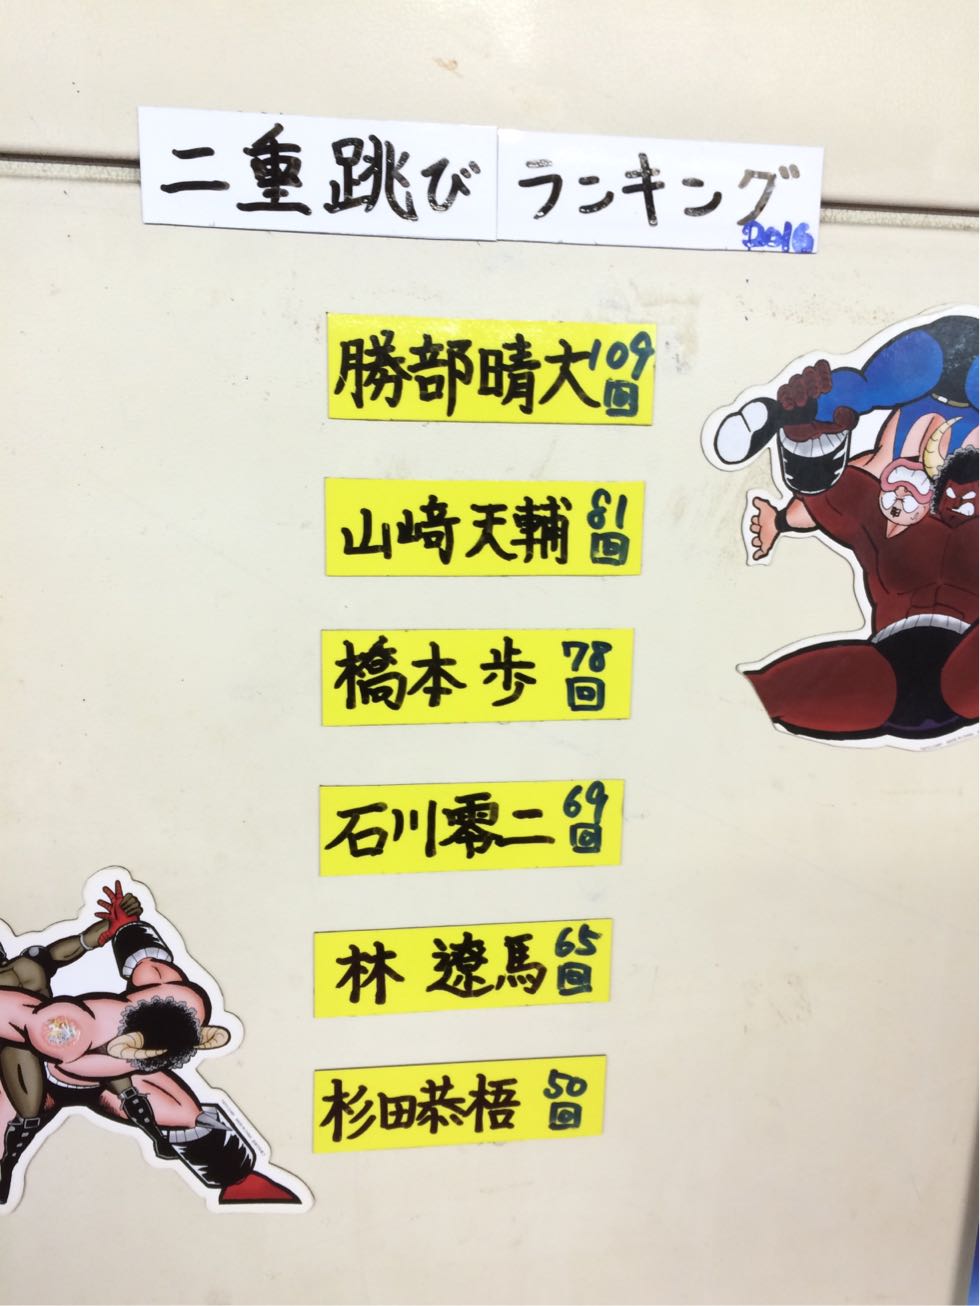 二重跳び ランキング
2016
勝部晴大 109回
山﨑天輔 81回
橋本 歩 78回
石川零二 69回
林 遼馬 65回
杉田恭梧 50回